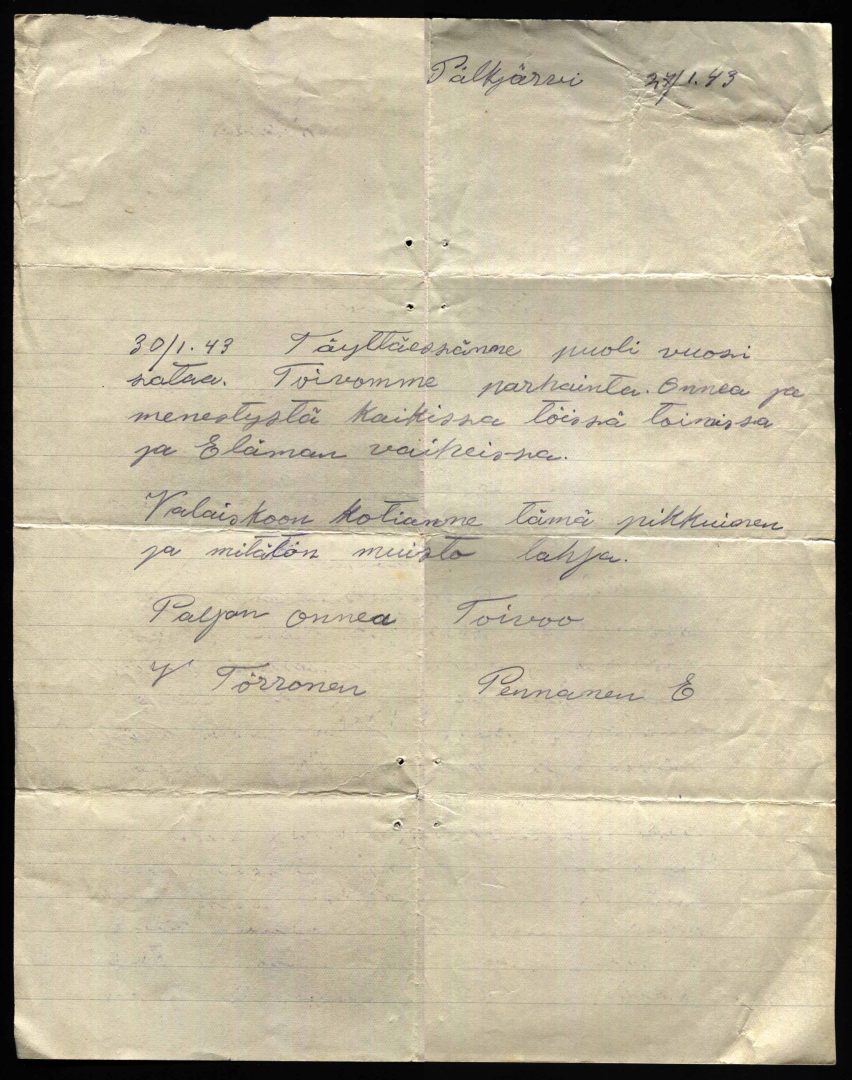 Pälkjärvi 27/1.43
30/1.43 Täyttäessänne puoli vuosi
sataa. Toivomme parhainta. Onnea ja
menestystä kaikissa töissä toimissa
ja Elämän vaiheissa.
Valaiskoon kotianne tämä pikkuinen
ja mitätön muisto lahja.
Paljon onnea Toivoo
V Törronen Pennanen E